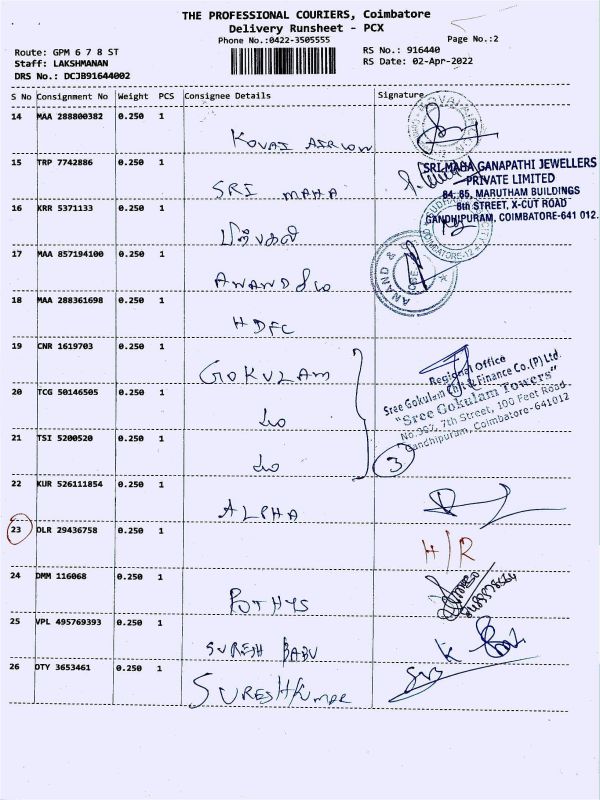 THE PROFESSIONAL COURIERS, Coimbatore
Delivery Runsheet - PCX
Phone No.:0422-3505555
Page No.:2
Route: GPM 6 7 8 ST
Staff: LAKSHMANAN
DRS No.: DCJB91644002
RS No.: 916440
RS Date: 02-Apr-2022
S No Consignment No Weight PCS Consignee Details Signature
14 MAA 288800382 0.250 1
KOVAI
15 TRP 7742886 0.250 1
SRI MAHA
SRI MAHA GANAPATHI JEWELLERS
PRIVATE LIMITED
84, 85, MARUTHAM BUILDINGS
8th STREET, X-CUT ROAD
GANDHIPURAM, COIMBATORE-641 012.
16 KRR 5371133 0.250 1
COIMBATORE-12
17 MAA 857194100 0.250 1
ANAND & Co
ANAND &
18 MAA 288361698 0.250 1
HDFC
19 CNR 1619703 0.250 1
GOKULAM
Regional Office
Sree Gokulam Chit & Finance Co.(P) Ltd.
"Sree Gokulam Towers"
No.367, 7th Street, 100 Feet Road,
Gandhipuram, Coimbatore-641012
20 TCG 50146505 0.250 1
21 TSI 5200520 0.250 1
3
22 KUR 526111854 0.250 1
ALPHA
23 DLR 29436758 0.250 1
H/R
24 DMM 116068 0.250 1
POTHYS
25 VPL 495769393 0.250 1
SURESH BABU
26 OTY 3653461 0.250 1
SURESHKUMAR